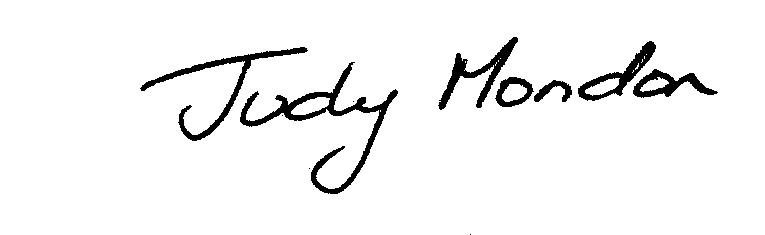 Judy Mondon